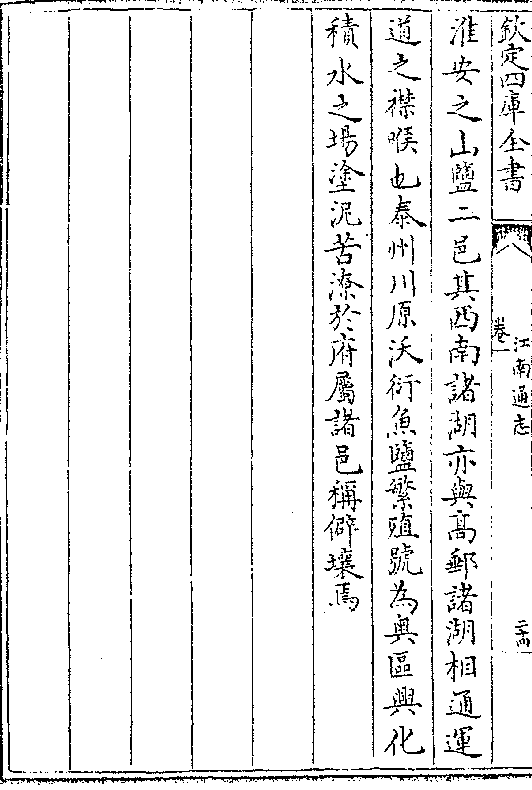 欽定四庫全書
江南通志
卷一
二十四
淮安之山鹽二邑其西南諸湖亦與高郵諸湖相通運
道之襟喉也泰州川原沃衍魚鹽繁殖號為奥區興化
積水之場塗泥苦潦於府屬諸邑稱僻壤焉